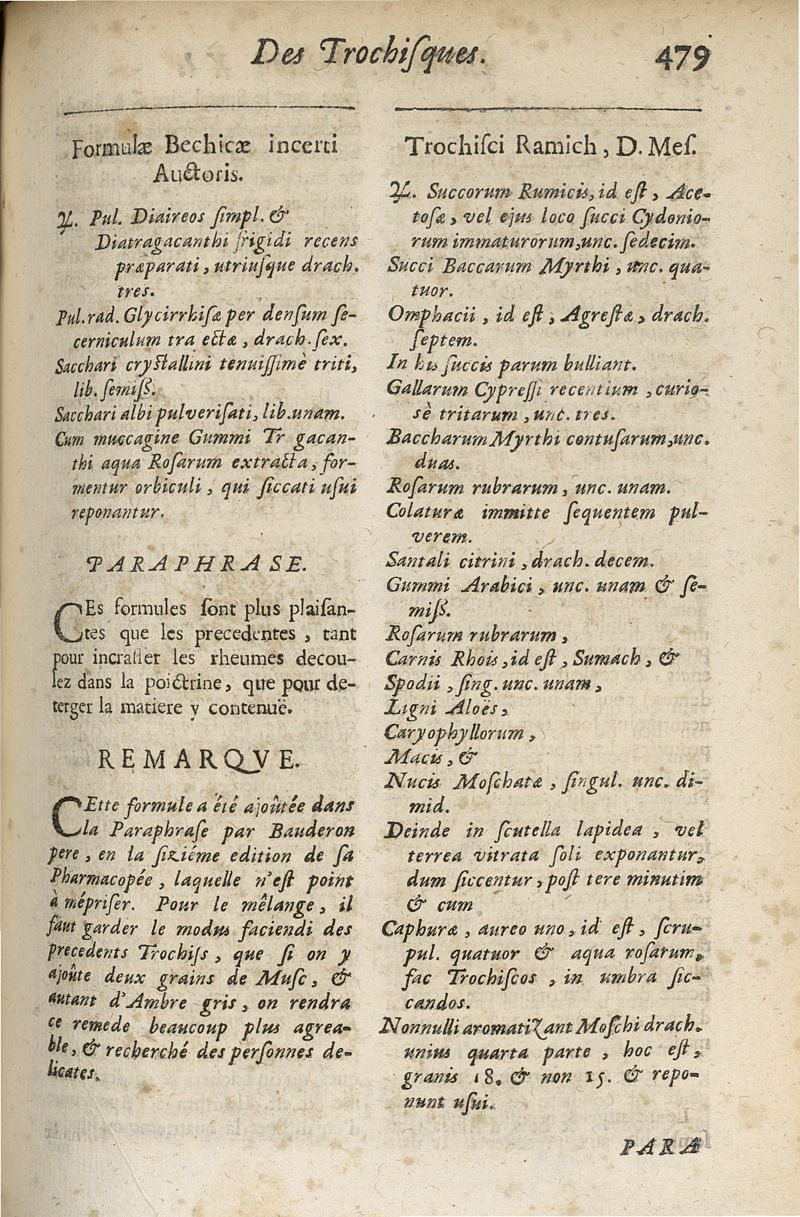 Des Trochiſques.
479
Formulæ Bechicæ incerti
Auctoris.
℞. Pul. Diaireos ſimpl. &
Diatragacanthi frigidi recens
præparati, utriuſque drach.
tres.
Pul. rad. Glycirrhiſæ per denſum ſe-
cerniculum tra ectæ, drach. ſex.
Sacchari cryſtallini tenuiſſimè triti,
lib. ſemiſſ.
Sacchari albi pulveriſati, lib. unam.
Cum muccagine Gummi Tr gacan-
thi aqua Roſarum extracta, for-
mentur orbiculi, qui ſiccati uſui
reponantur.
PARAPHRASE.
CEs formules ſont plus plaiſan-
tes que les precedentes, tant
pour incraſſer les rheumes decou-
lez dans la poictrine, que pour de-
terger la matiere y contenuë.
REMARQVE.
CEtte formule a été ajoûtée dans
la Paraphraſe par Bauderon
pere, en la ſiziéme edition de ſa
Pharmacopée, laquelle n'eſt point
à mépriſer. Pour le mêlange, il
faut garder le modus faciendi des
precedents Trochiſs, que ſi on y
ajoûte deux grains de Muſc, &
autant d'Ambre gris, on rendra
ce remede beaucoup plus agrea-
ble, & recherché des perſonnes de-
licates.
Trochiſci Ramich, D. Meſ.
℞. Succorum Rumicis, id eſt, Ace-
toſæ, vel ejus loco ſucci Cydonio-
rum immaturorum, unc. ſedecim.
Succi Baccarum Myrthi, unc. qua-
tuor.
Omphacii, id eſt, Agreſtæ, drach.
ſeptem.
In his ſuccis parum bulliant.
Gallarum Cypreſſi recentium, curio-
sè tritarum, unc. tres.
Baccharum Myrthi contuſarum, unc.
duas.
Roſarum rubrarum, unc. unam.
Colaturæ immitte ſequentem pul-
verem.
Santali citrini, drach. decem.
Gummi Arabici, unc. unam & ſe-
miſſ.
Roſarum rubrarum,
Carnis Rhois, id eſt, Sumach, &
Spodii, ſing. unc. unam,
Ligni Aloës,
Caryophyllorum,
Macis, &
Nucis Moſchatæ, ſingul. unc. di-
mid.
Deinde in ſcutella lapidea, vel
terrea vitrata ſoli exponantur,
dum ſiccentur, poſt tere minutim
& cum
Caphuræ, aureo uno, id eſt, ſcru-
pul. quatuor & aqua roſarum,
fac Trochiſcos, in umbra ſic-
candos.
Nonnulli aromatiZant Moſchi drach.
unius quarta parte, hoc eſt,
granis 18. & non 15. & repo-
nunt uſui.
PARA